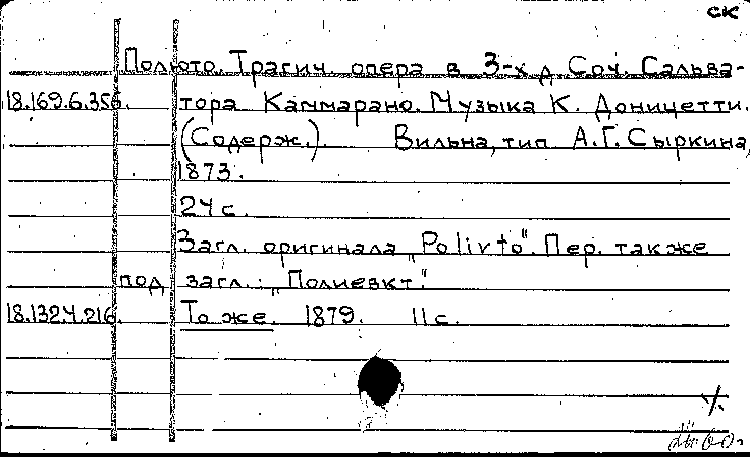 СК
Полюто. Трагич. опера в 3-х д Соч. Сальва-
18.169.6.356. тора Каммарано. Музыка К. Доницетти.
(Содерж.). Вильна, тип А.Г. Сыркина,
1873.
24 с.
Загл. оригинала „Polivto". Пер. также
под загл.: „Полиевкт".
18.132.4.216. То же. 1879. 11 с.